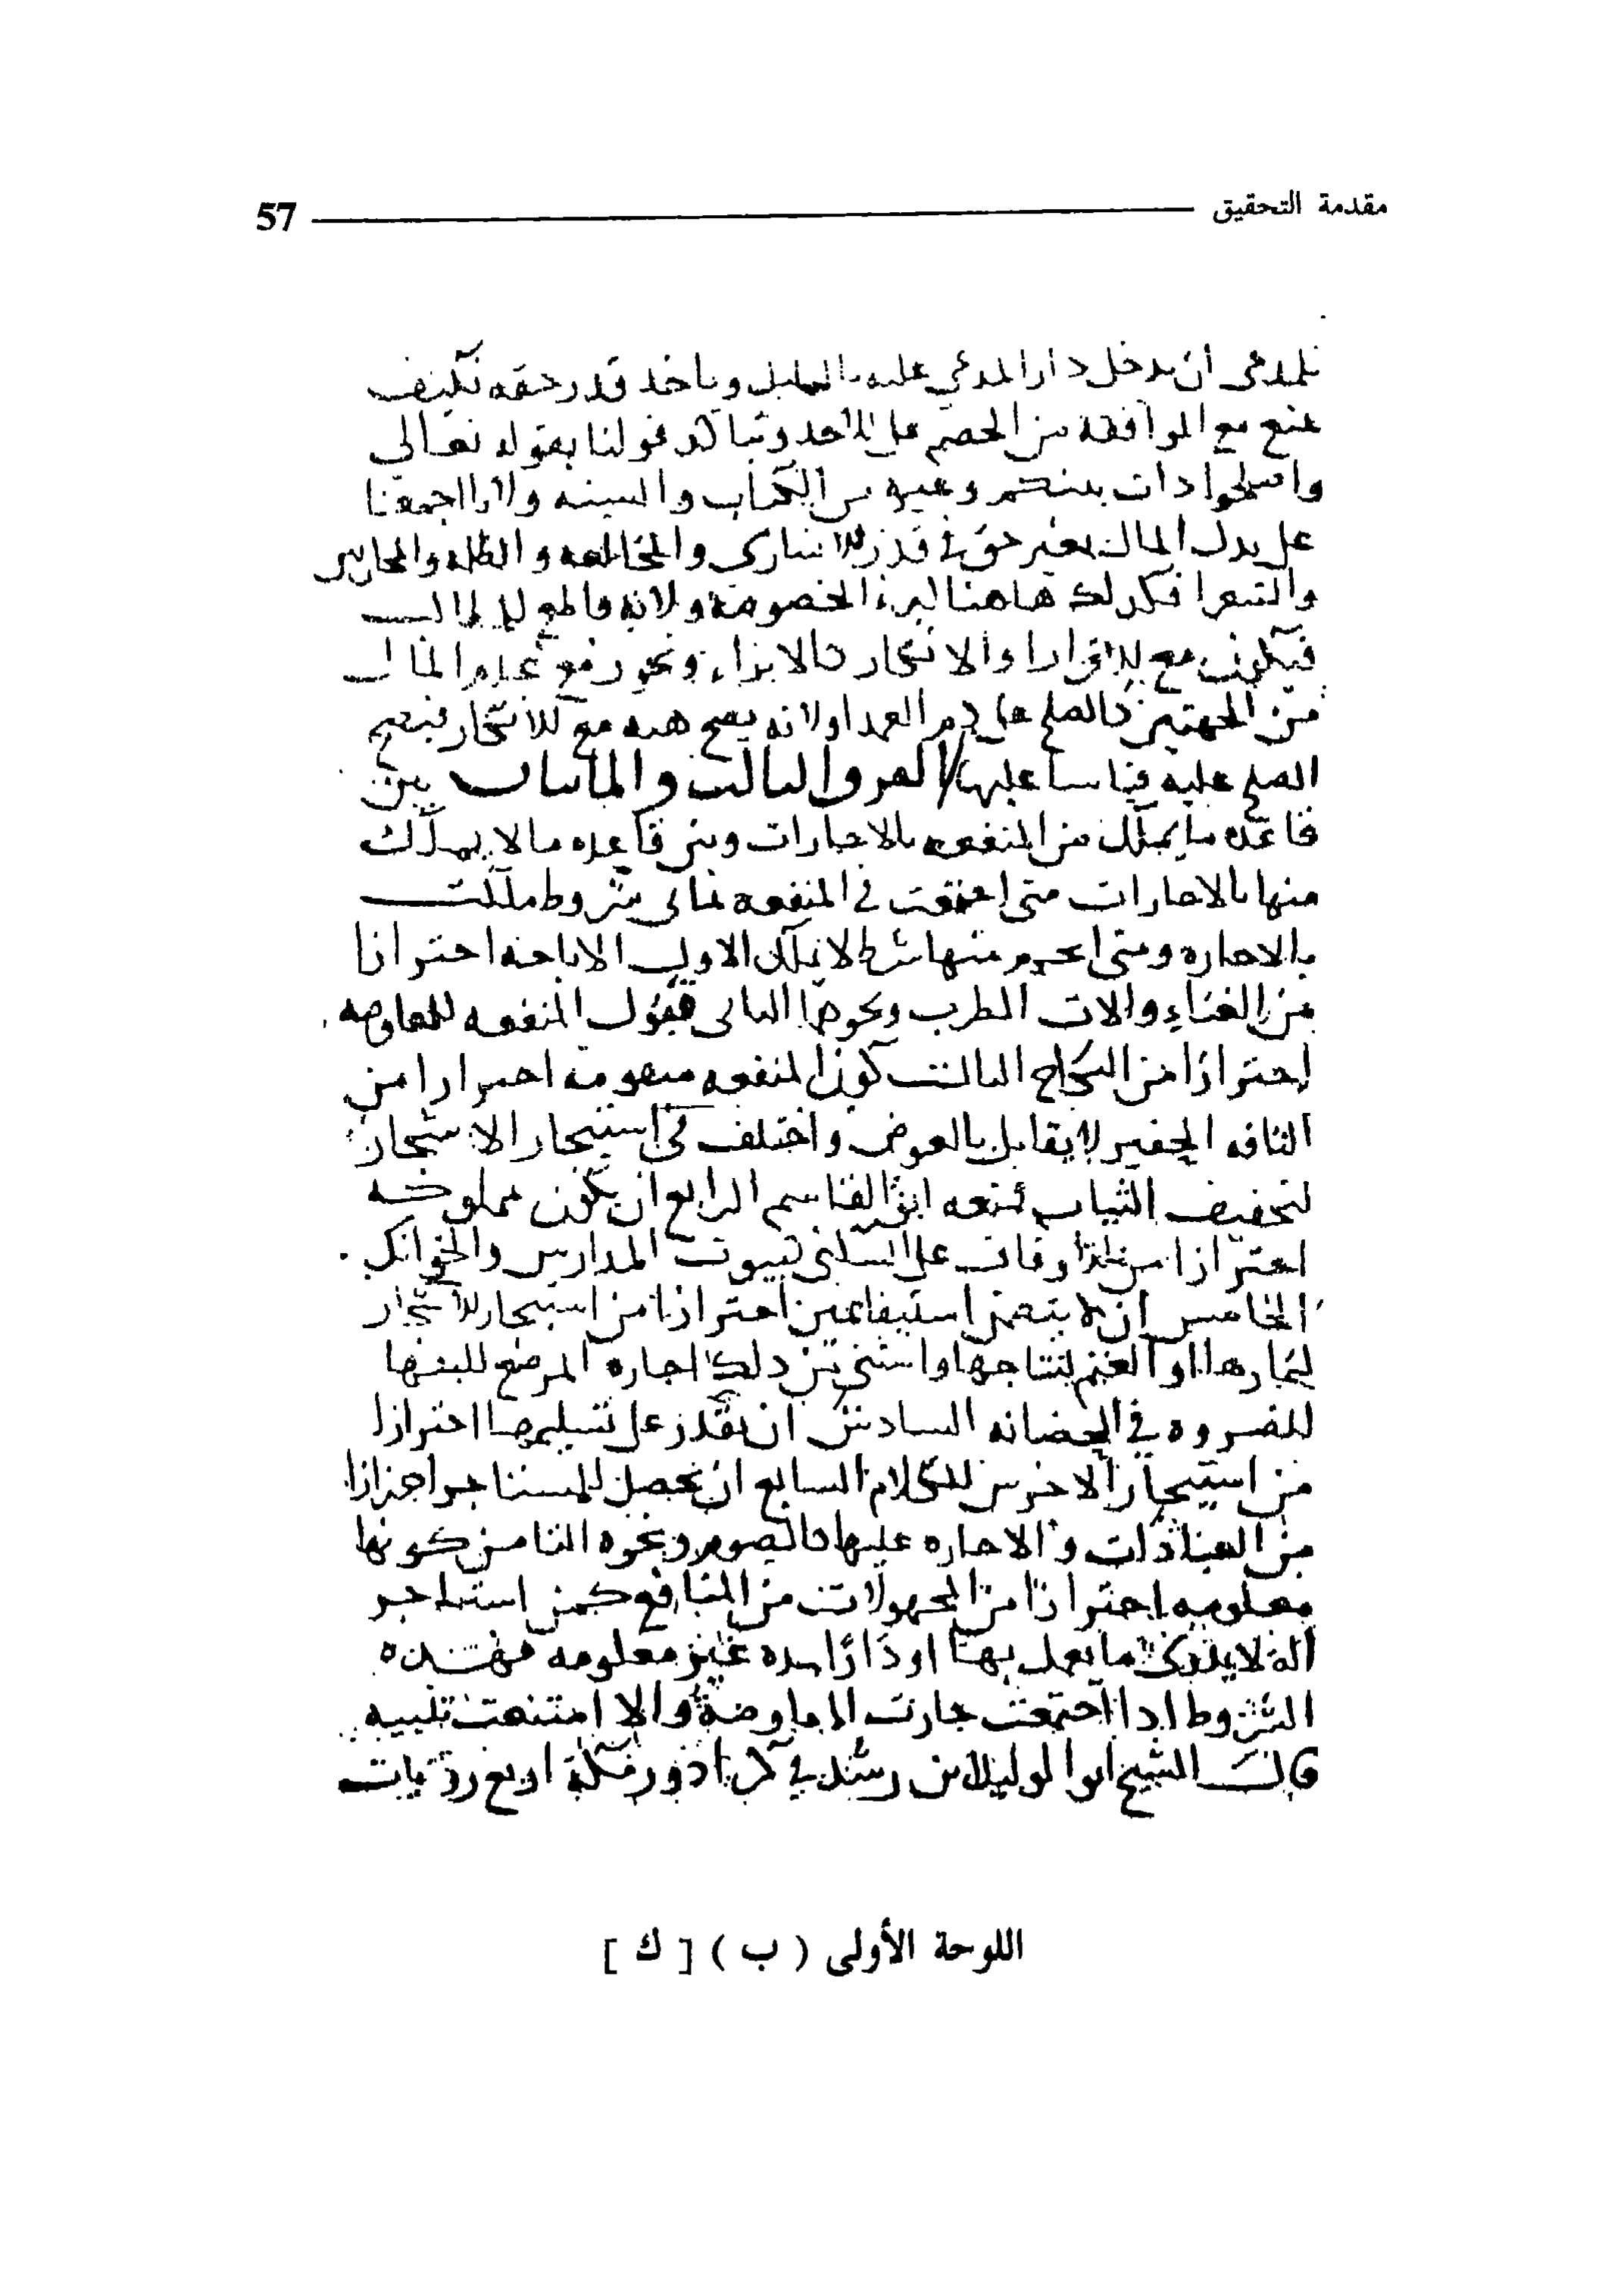 مقدمة التحقيق 57
للمدعى ان يدخل دار المدعي عليه بالليل وياخذ قدر حقه فكيف
يمنع مع الموافقة من الخصم على الاخذ ويتاكد قولنا بقوله تعالي
واصلحوا ذات بينكم وغيره من الكتاب والسنه ولانا اجمعنا
على بدل المال بغير حق في فدا الاسارى والمخالعه والظلمه والمحاربين
والشعرا فكذلك هاهنا لدرء الخصومة ولانه قاطع للمطالبــ
فيكون مع الاقرار او الانكار كالابراء ونحوز مع المال
من الجهتين كالصلح على دم العمد او لانه يصح هبه مع الانكار فيصح
الصلح عليه قياسا عليها الفرق الثالث والمائتان بين
قاعده ما يملك من المنفعه بالاجارات وبين قاعده مالا يملك
منها بالاجارات متى اجتمعت في المنفعه ثماني شروط ملكت
بالاجاره ومتى انخرم منها شرط لا يملك الاول الاباحه احترازا
من الغناء والات الطرب ونحوها الثاني قبول المنفعه للمعاوضه
احترازا من النكاح الثالث كون المنفعه متقومة احترازا من
التافه الحقير لا يقابل بالعوض واختلف في استيجار الاشجار
لتجفيف الثياب فمنعه ابن القاسم الرابع ان يكون مملوكه
احترازا من الاوقاف على السكنى كبيوت المدارس والخوانك
الخامس ان لا يتضمن استيفا عين احترازا من استيجار الاشجار
لثمارها او الغنم لنتاجها واستثني من ذلك اجاره المرضع للبنها
للضروره في الحضانه السادس ان يقدر على تسليمها احترازا
من استيجار الاخرس للكلام السابع ان يحصل للمستاجر احترازا
من العبادات والاجاره عليها كالصوم ونحوه الثامن كونها
معلومه احترازا من المجهولات من المنافع كمن استاجر
الة لا يدرى ما يعمل بها او دارا مده غير معلومه فهــذه
الشروط اذا اجتمعت جازت المعاوضة والا امتنعت تنبيه
قال الشيخ ابو الوليد بن رشد في كرا دور مكة اربع روايات
اللوحة الأولى ( ب ) [ ك ]